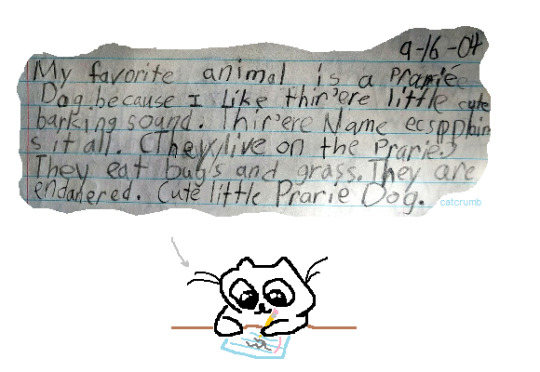 9-16-04
My favorite animal is a Prarie
Dog because I like thir'ere little cute
barking sound. Thir'ere Name ecspplain
s it all. (They live on the Prarie)
They eat bugs and grass. They are
endanered. Cute little Prarie Dog.
catcrumb